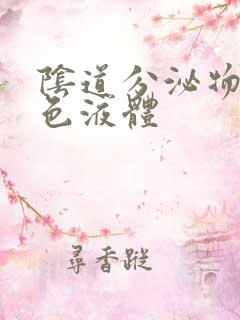 陰道分泌物
色液體
尋香蹤